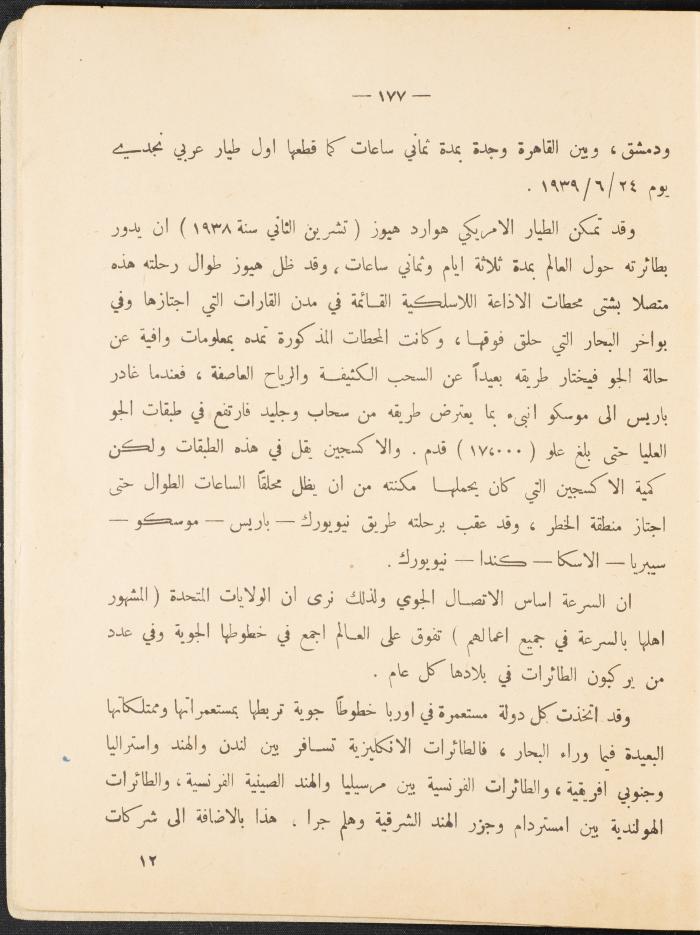 — ١٧٧ —
ودمشق ، وبين القاهرة وجدة بمدة ثماني ساعات كما قطعها اول طيار عربي نجدي
يوم ٢٤ /٦ /١٩٣٩ .
وقد تمكن الطيار الامريكي هوارد هيوز ( تشرين الثاني سنة ١٩٣٨ ) ان يدور
بطائرته حول العالم بمدة ثلاثة ايام وثماني ساعات ، وقد ظل هيوز طوال رحلته هذه
متصلا بشتى محطات الاذاعة اللاسلكية القائمة في مدن القارات التي اجتازها وفي
بواخر البحار التي حلق فوقها ، وكانت المحطات المذكورة تمده بمعلومات وافية عن
حالة الجو فيختار طريقه بعيداً عن السحب الكثيفة والرياح العاصفة ، فعندما غادر
باريس الى موسكو انبىء بما يعترض طريقه من سحاب وجليد فارتفع في طبقات الجو
العليا حتى بلغ علو ( ١٧،٠٠٠ ) قدم . والاكسجين يقل في هذه الطبقات ولكن
كمية الاكسجين التي كان يحملها مكنته من ان يظل محلقاً الساعات الطوال حتى
اجتاز منطقة الخطر ، وقد عقب برحلته طريق نيويورك — باريس — موسكو —
سيبريا — الاسكا — كندا — نيويورك .
ان السرعة اساس الاتصال الجوي ولذلك نرى ان الولايات المتحدة ( المشهور
اهلها بالسرعة في جميع اعمالهم ) تفوق على العالم اجمع في خطوطها الجوية وفي عدد
من يركبون الطائرات في بلادها كل عام .
وقد اتخذت كل دولة مستعمرة في اوربا خطوطاً جوية تربطها بمستعمراتها وممتلكاتها
البعيدة فيما وراء البحار ، فالطائرات الانكليزية تسافر بين لندن والهند واستراليا
وجنوبي افريقية ، والطائرات الفرنسية بين مرسيليا والهند الصينية الفرنسية ، والطائرات
الهولندية بين امستردام وجزر الهند الشرقية وهلم جرا . هذا بالاضافة الى شركات
١٢